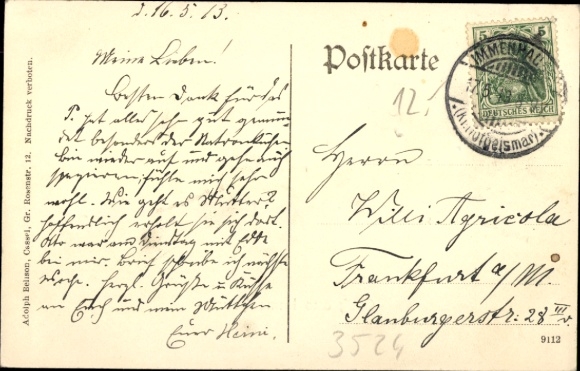 d. 16.5.13.
Meine Lieben!
Besten Dank für das
P. hat alles sehr gut gemun-
det besonders der Natronkuchen
bin wieder auf und gehe auch
spazieren, fühle mich sehr
wohl. Wie geht es Mutter?
hoffentlich erholt sie sich dort.
war am Dienstag mit
bei mir. Brief schreibe ich nächste
Woche. Herzl. Grüße u Küsse
an Euch und mein Muttchen
Euer Heini.
Postkarte
5 5
DEUTSCHES REICH
IMMENHAU
(Kr. Hofgeismar)
12.
Herrn
Willi Agricola
Frankfurt a/M.
Glauburgerstr: 28 III v.
3524
9112
Adolph Reisson, Cassel, Gr. Rosenstr. 12. Nachdruck verboten.